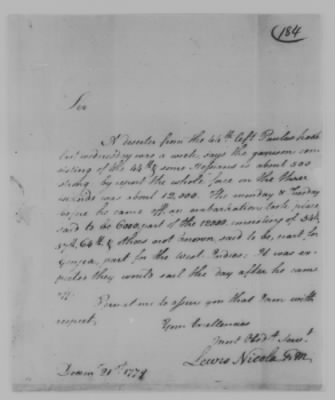 184
Sir
A deserter from the 44th left Paulus hook
last wednesday was a week, says the garrison con
sisting of the 44th & some Hessians is about 500
strong by report the whole force on the three
islands was about 12,000. The monday & Tuesday
before he came off an embarkation took place
said to be 6000, part of the 12000. consisting of 54th
57th, 64th & others not known, said to be, part for
part for the West Indies: It was ex
pected they would sail the day after he came
off.
Permit me to assure you that I am with
respect,
Your Excellencies
most Obedt. Servt.
Lewis Nicola T.M
21st. 1779